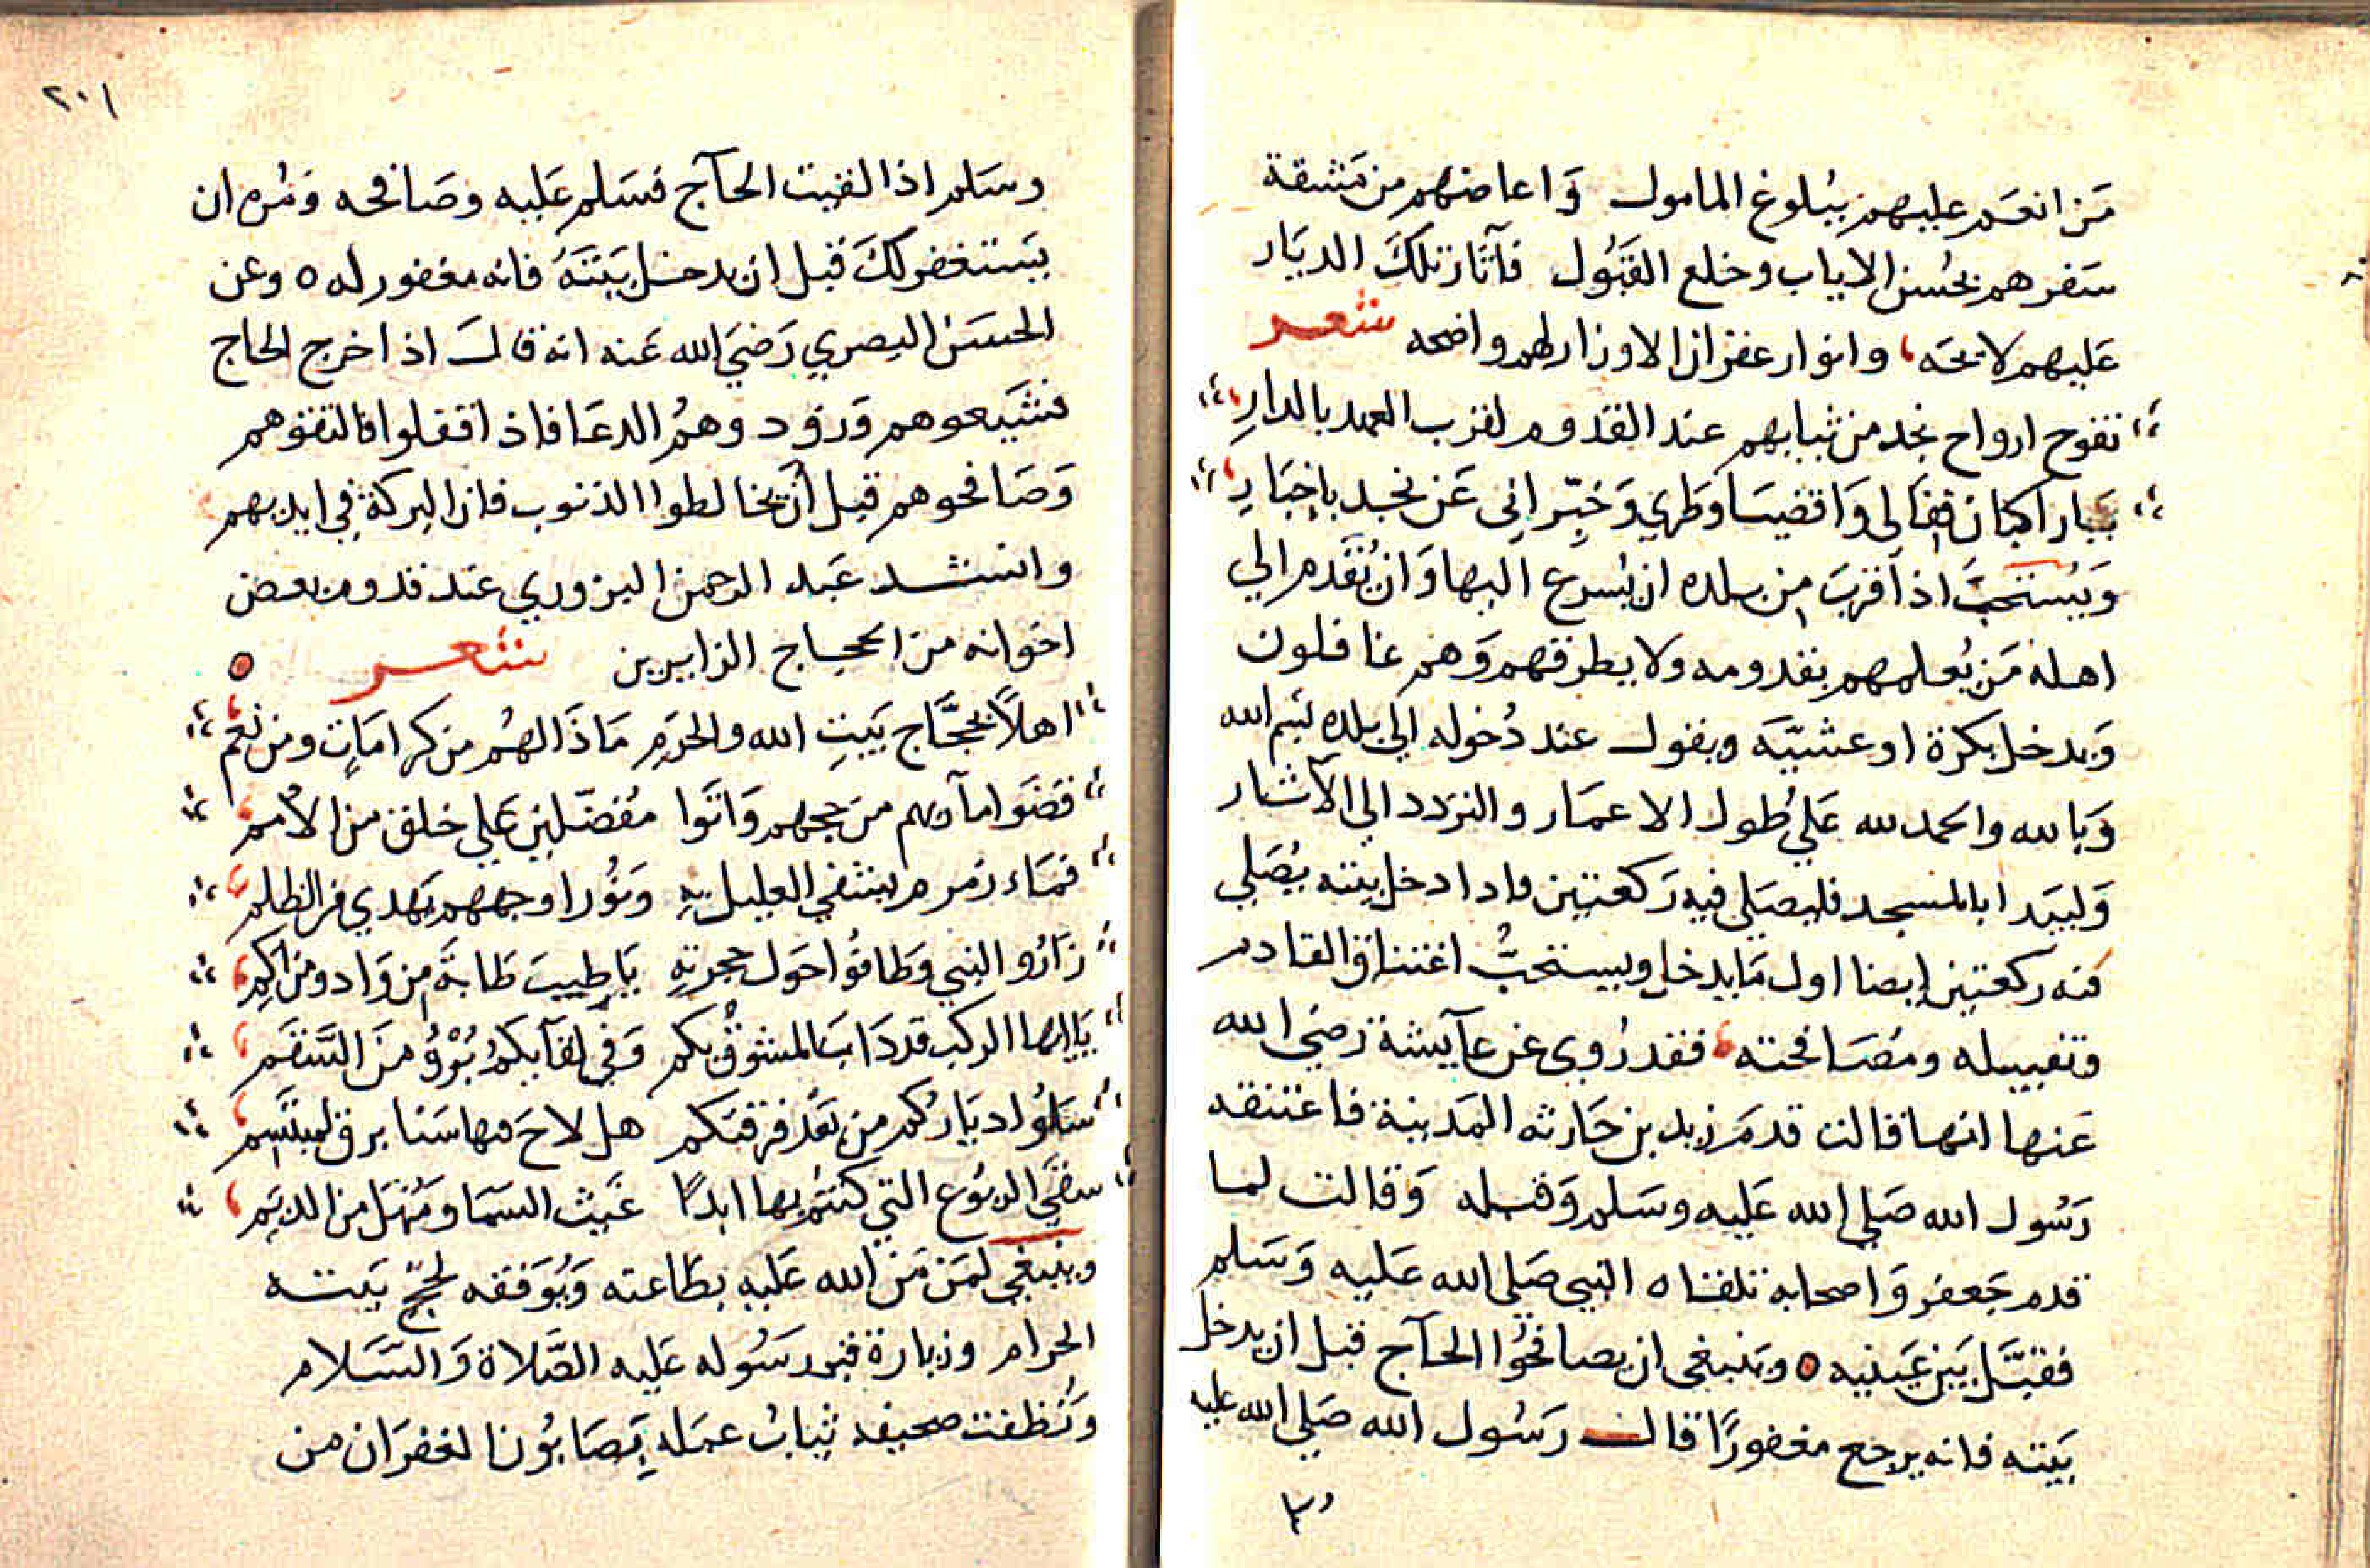 مَن انعَم عليهم ببُلوغ المامول وَاعاضهم من مَشقة
سَفرهم بحُسن الاياب وخلع القبُول فآثار تلكَ الديَار
عَليهم لايحَه وانوار غفران الاوزار لهم واضحه شعر
تفوح ارواح نجد من ثيابهم عند القدوم لقرب العهد بالدارِ
يَا راكبان قفا لي وَاقضيَا وطري وَخبّراني عَن نجد باخبَارِ
وَيُستحبُّ اذا قربَ من بلده ان يُسرع اليها وَان يُقَدم الي
اهله مَن يُعلمهم بقدومه ولا يطرقهم وَهم غافلون
وَيدخل بكرة او عشيّه ويقول عند دُخوله الي بلده بسم الله
وَبالله والحمد لله عَلي طول الاعمَار والتردد الي الآثار
وَليبَدا بالمسجد فليصَلي فيه رَكعتين واذا دخل بيته يُصَلي
فيه ركعتين ايضا اول مَا يدخل ويستحبُّ اعتناق القادم
وتقبيله ومُصَافحته فقد رُوي عن عآيشة رَضيَ الله
عَنها انها قالت قدمَ زيد بن حَارثه المَدينة فاعتنقه
رَسُول الله صَلي الله عَليه وسَلم وَقبله وَقالت لما
قدم جَعفر وَاصحابه تلقاه النبي صَلي الله عَليه وَسَلم
فقبَّل بَين عَينيه ٥ وَينبغي ان يصافحُوا الحآج قبل ان يدخل
بَيته فانه يرجع مغفورًا قال رَسُول الله صَلي الله عليه
٢٠١
وسَلم اذا لقيت الحآج فسَلم عَليه وصَافحه وَمُره ان
يَستغفر لكَ قبل ان يدخل بَيتَهُ فانه مغفور له ٥ وعن
الحسَن البصري رَضيَ الله عَنه انه قالَ اذا خرج الحاج
فشيّعوهم وَزوّدوهمُ الدعَا فاذا قفلوا فالتقوهم
وَصَافحوهم قبل أن يخالطوا الذنوب فان البركة في ايديهم
وانشد عَبد الرحمن البزوري عند قدوم بعض
اخوانه منَ الحجاج الزايرين شعر ٥
اهلاً بحجَّاج بَيتِ الله والحَرمِ مَاذَا لهُم من كرامَاتٍ ومن نعَم
قضَوا مآربهم من حجهم وَاتَوا مُفضّلين عَلي خلق من الاُمم
فمَاء زمزم يشفي العليل بهِ ونُور اوجههم يَهدي من الظلم
زَارُو النبي وَطافُوا حَول حجرتهِ يَا طيبَ طابةَ من وَاد ومن اكم
يَا ايها الركب قد ذابَ المشوقُ بكم وَفي لقآيكُم بُرْؤٌ منَ السَّقَم
سَلوُا ديَاركُم من بَعد فرقتكم هل لاحَ فيها سَنا برق لمبتَسِم
سقَي الربُوع التي كنتُم بها ابدًا غَيث السمَا ومُنهَل من الديَمِ
وينبغي لمَن مَنَّ الله عَليه بطَاعته وَيُوَفقه لحجّ بَيته
الحرام وزيارة قبر رَسُوله عَليه الصَّلاة وَالسَّلام
وَنُظفت صحيفه ثيابُ عمَله بِصَابُون الغفرَان من